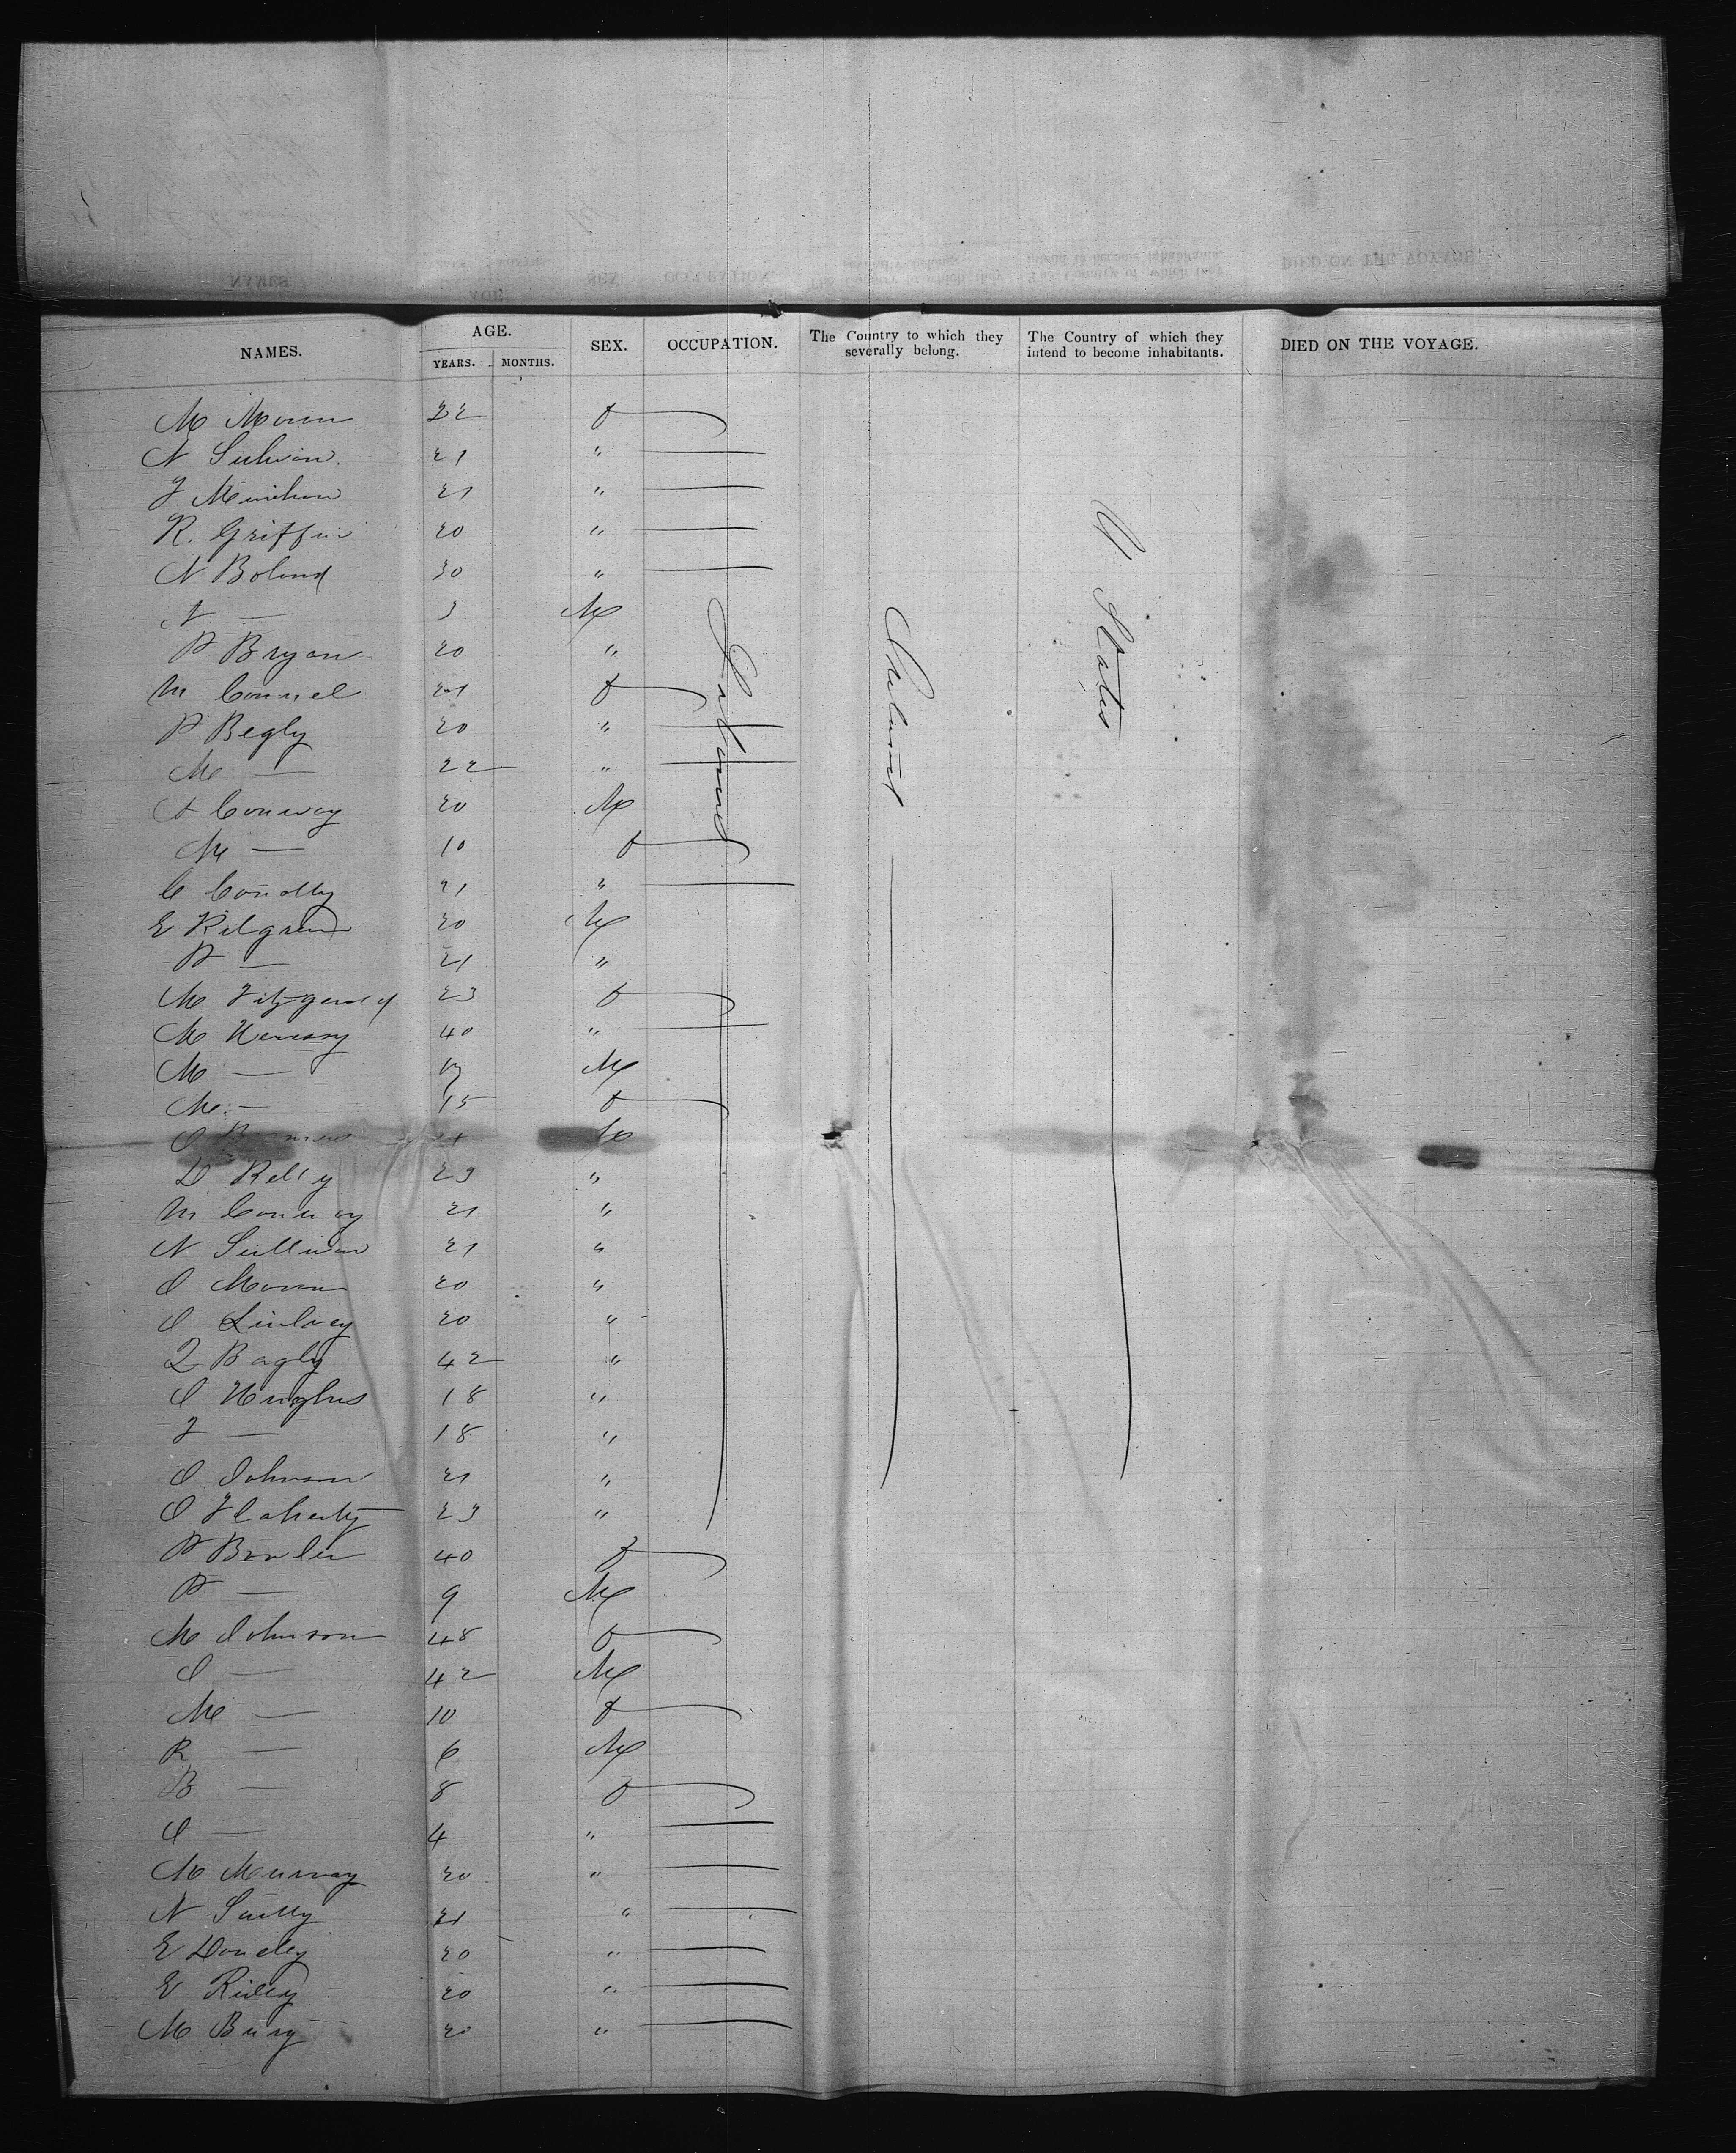 NAMES. AGE. YEARS. MONTHS. SEX. OCCUPATION. The Country to which they severally belong. The Country of which they intend to become inhabitants. DIED ON THE VOYAGE.
M Moran 22 f
N Sulivan 21 "
J Minihan 21 "
R. Griffin 20 "
N Boland 30 "
J — 3 M
P Bryan 20 "
M Connel 21 f
P Begly 20 "
M — 22 "
A Conway 20 M
M — 10 f
C Conolly 21 "
E 20 M
P — 21 "
M Fitzgerald 23 f
M Henessy 40 "
M — M
M — 15 f
J M
D Kelly 23 "
M Conway 21 "
N Sullivan 21 "
J Moran 20 "
J 20 "
T Bagly 42 "
J Hughes 18 "
J — 18 "
J Johnson 21 "
J Flaherty 23 "
P Bowler 40 f
P — 9 M
M Johnson 48 f
J — 42 M
M — 10 f
R — 6 M
B — 8 f
J — 4 "
M Murray 20 "
N Scully 21 "
E 20 "
E Rieley 20 "
M 20 "
Ireland
U States